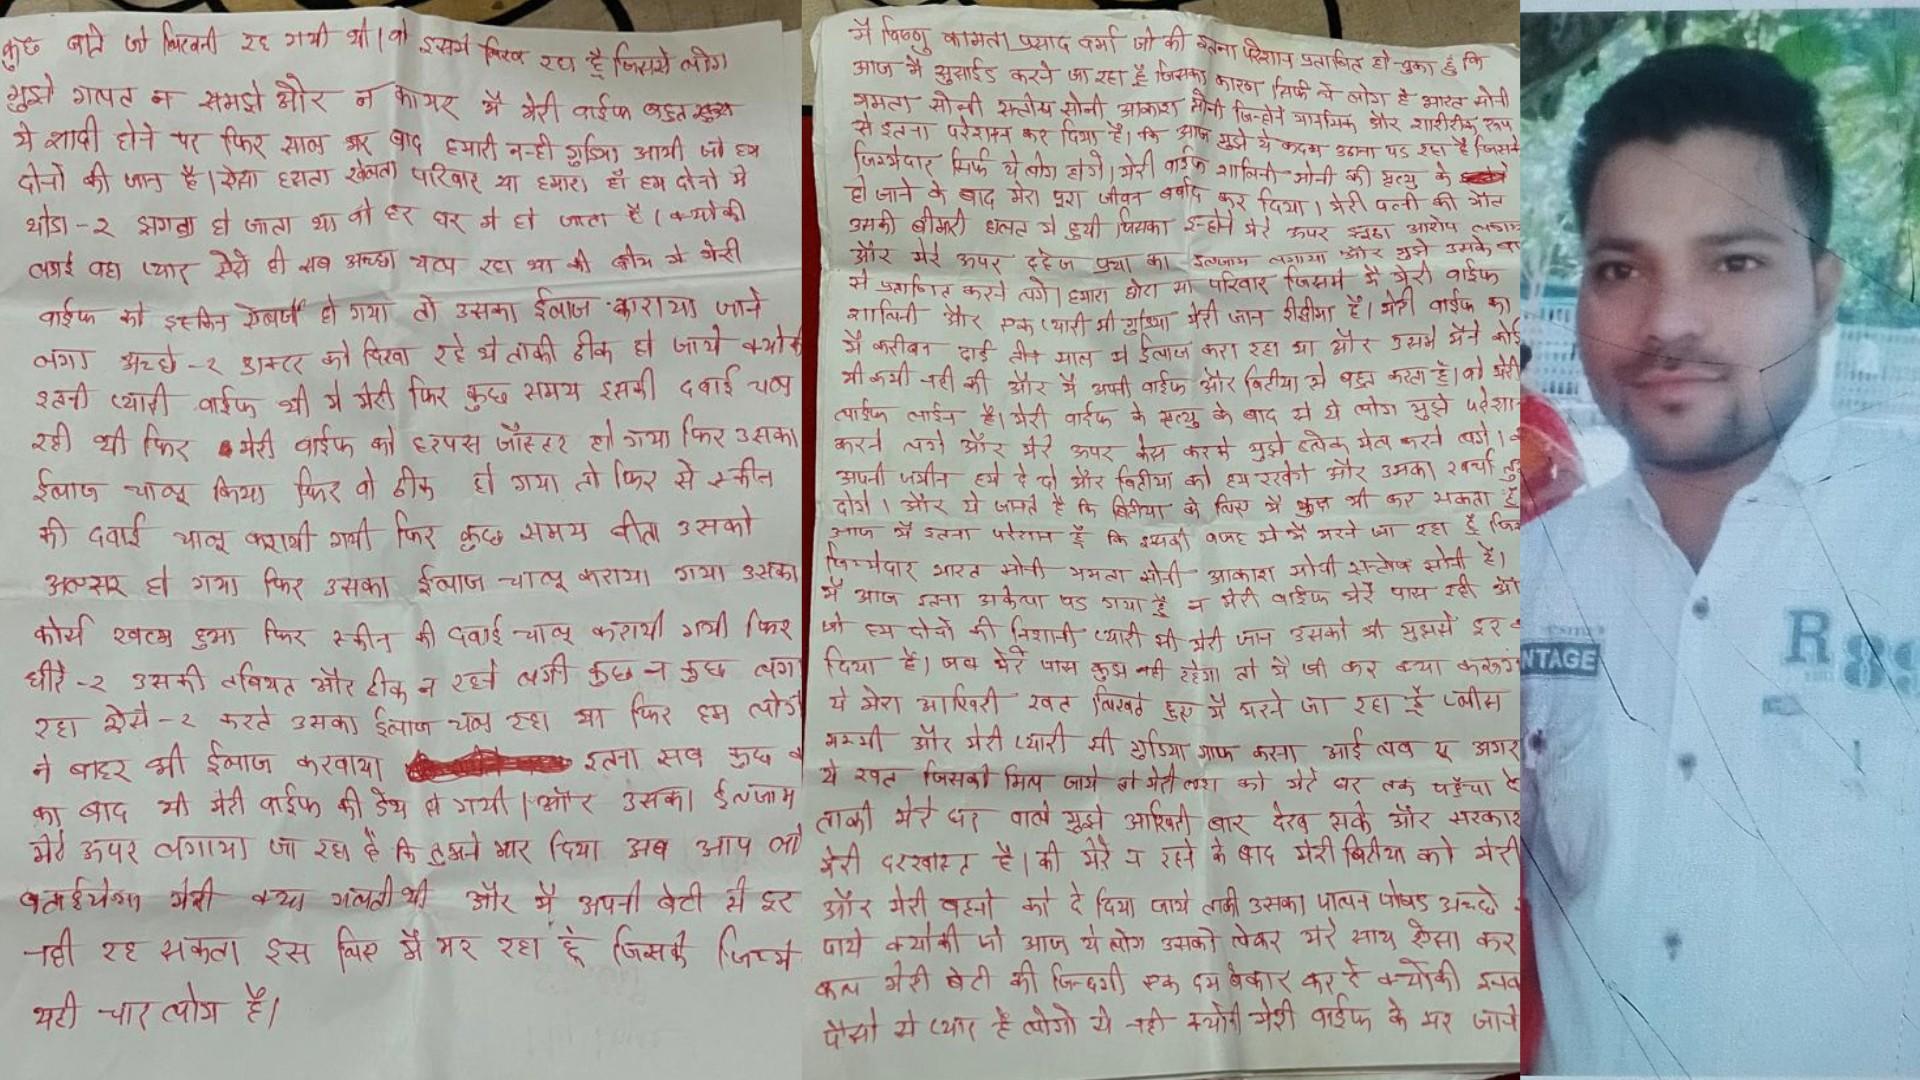 कुछ बाते जो लिखनी रह गयी थी। वो इसमे लिख रहा हूँ जिससे लोग
मुझे गलत न समझे और न कायर मै मेरी वाईफ बहुत खुश
थे शादी होने पर फिर साल भर बाद हमारी नन्ही गुडिया आयी जो हम
दोनो की जान है। ऐसा हसता खेलता परिवार था हमारा हाँ हम दोनो मे
थोडा-२ झगडा हो जाता था वो हर घर मे हो जाता है। क्योकी
लडाई वहा प्यार ऐसे ही सब अच्छा चल रहा था की बीच मे मेरी
वाईफ को इस्किन एलर्जी हो गया तो उसका ईलाज काराया जाने
लगा अच्छे-२ डाक्टर को दिखा रहे थे ताकी ठीक हो जाये क्योकी
इतनी प्यारी वाईफ थी मे मेरी फिर कुछ समय इसकी दवाई चल
रही थी फिर मेरी वाईफ को हरपस जॉस्टर हो गया फिर उसका
ईलाज चालू किया फिर वो ठीक हो गया तो फिर से स्कीन
की दवाई चालू करायी गयी फिर कुछ समय बीता उसको
अल्सर हो गया फिर उसका ईलाज चालू कराया गया उसका
कोर्स खत्म हुआ फिर स्कीन की दवाई चालू करायी गयी फिर
धीरे-२ उसकी तबियत और ठीक न रहने लगी कुछ न कुछ लगा
रहा ऐसे-२ करते उसका ईलाज चल रहा था फिर हम लोगो
ने बाहर भी ईलाज करवाया इतना सब कुछ
का बाद भी मेरी वाईफ की डेथ हो गयी। और उसका ईल्जाम
मेरे ऊपर लगाया जा रहा है कि तुमने मार दिया अब आप लो
बताईयेगा मेरी क्या गलती थी और मै अपनी बेटी से दूर
नही रह सकता इस लिए मै मर रहा हूँ जिसके जिम्मे
यही चार लोग है।
मै विष्णु कामता प्रसाद वर्मा जो की इतना परेशान प्रताणित हो चुका हूँ कि
आज मै सुसाईड करने जा रहा हूँ जिसका कारण सिर्फ ये लोग है भारत सोनी
ममता सोनी सन्तोष सोनी आकाश सोनी जिन्होने मानसिक और शारीरीक रूप
से इतना परेशान कर दिया है। कि आज मुझे ये कदम उठाना पड रहा है जिसके
जिम्मेदार सिर्फ ये लोग होगे। मेरी वाईफ शालिनी सोनी की मृत्यु के
हो जाने के बाद मेरा पूरा जीवन बर्बाद कर दिया। मेरी पत्नी की मौत
उसकी बीमारी हालत मे हुयी जिसका इन्होने मेरे ऊपर झूठा आरोप लगाया
और मेरे ऊपर दहेज प्रथा का इल्जाम लगाया और मुझे उसके
से प्रताणित करने लगे। हमारा छोटा सा परिवार जिसमे मै मेरी वाईफ
शालिनी और एक प्यारी सी गुडिया मेरी जान है। मेरी वाईफ का
मै करीबन ढाई तीन साल से ईलाज करा रहा था और उसमे मैने कोई
भी कमी नही की और मै अपनी वाईफ और बिटीया से बहुत करता हूँ। वो मेरी
लाईफ लाईन है। मेरी वाईफ के मृत्यु के बाद से ये लोग मुझे परेशान
करने लगे और मेरे ऊपर केस करके मुझे ब्लैक मेल करने लगे।
अपनी जमीन हमे दे दो और बिटीया को हम रखेगे और उसका खर्चा तुम
दोगे। और ये जानते है कि बिटीया के लिए मै कुछ भी कर सकता हूँ
आज मै इतना परेशान हूँ कि इसकी वजह से मै मरने जा रहा हूँ जिस
जिम्मेदार भारत सोनी ममता सोनी आकाश सोनी सन्तोष सोनी है।
मै आज इतना अकेला पड गया हूँ न मेरी वाईफ मेरे पास रही और
जो हम दोनो की निशानी प्यारी सी मेरी जान उसको भी मुझसे दूर
दिया है। जब मेरे पास कुछ नही रहेगा तो मै जी कर क्या करूंगा
ये मेरा आखिरी खत लिखते हुए मै मरने जा रहा हूँ प्लीस
मम्मी और मेरी प्यारी सी गुडिया माफ करना आई लव यू अगर
ये खत जिसको मिल जाये तो मेरी लाश को मेरे घर तक पहुँचा दे
ताकी मेरे घर वाले मुझे आखिरी बार देख सके और सरकार
मेरी दरखास्त है। की मेरे न रहने के बाद मेरी बिटीया को मेरी
और मेरी बहनो को दे दिया जाये ताकी उसका पालन पोषड अच्छे
जाये क्योकी जो आज ये लोग उसको लेकर मेरे साथ ऐसा कर
कल मेरी बेटी की जिन्दगी एक दम बेकार कर दे क्योकी इनको
पैसो से प्यार है लोगो से नही क्योकी मेरी वाईफ के मर जाने
NTAGE
R 89